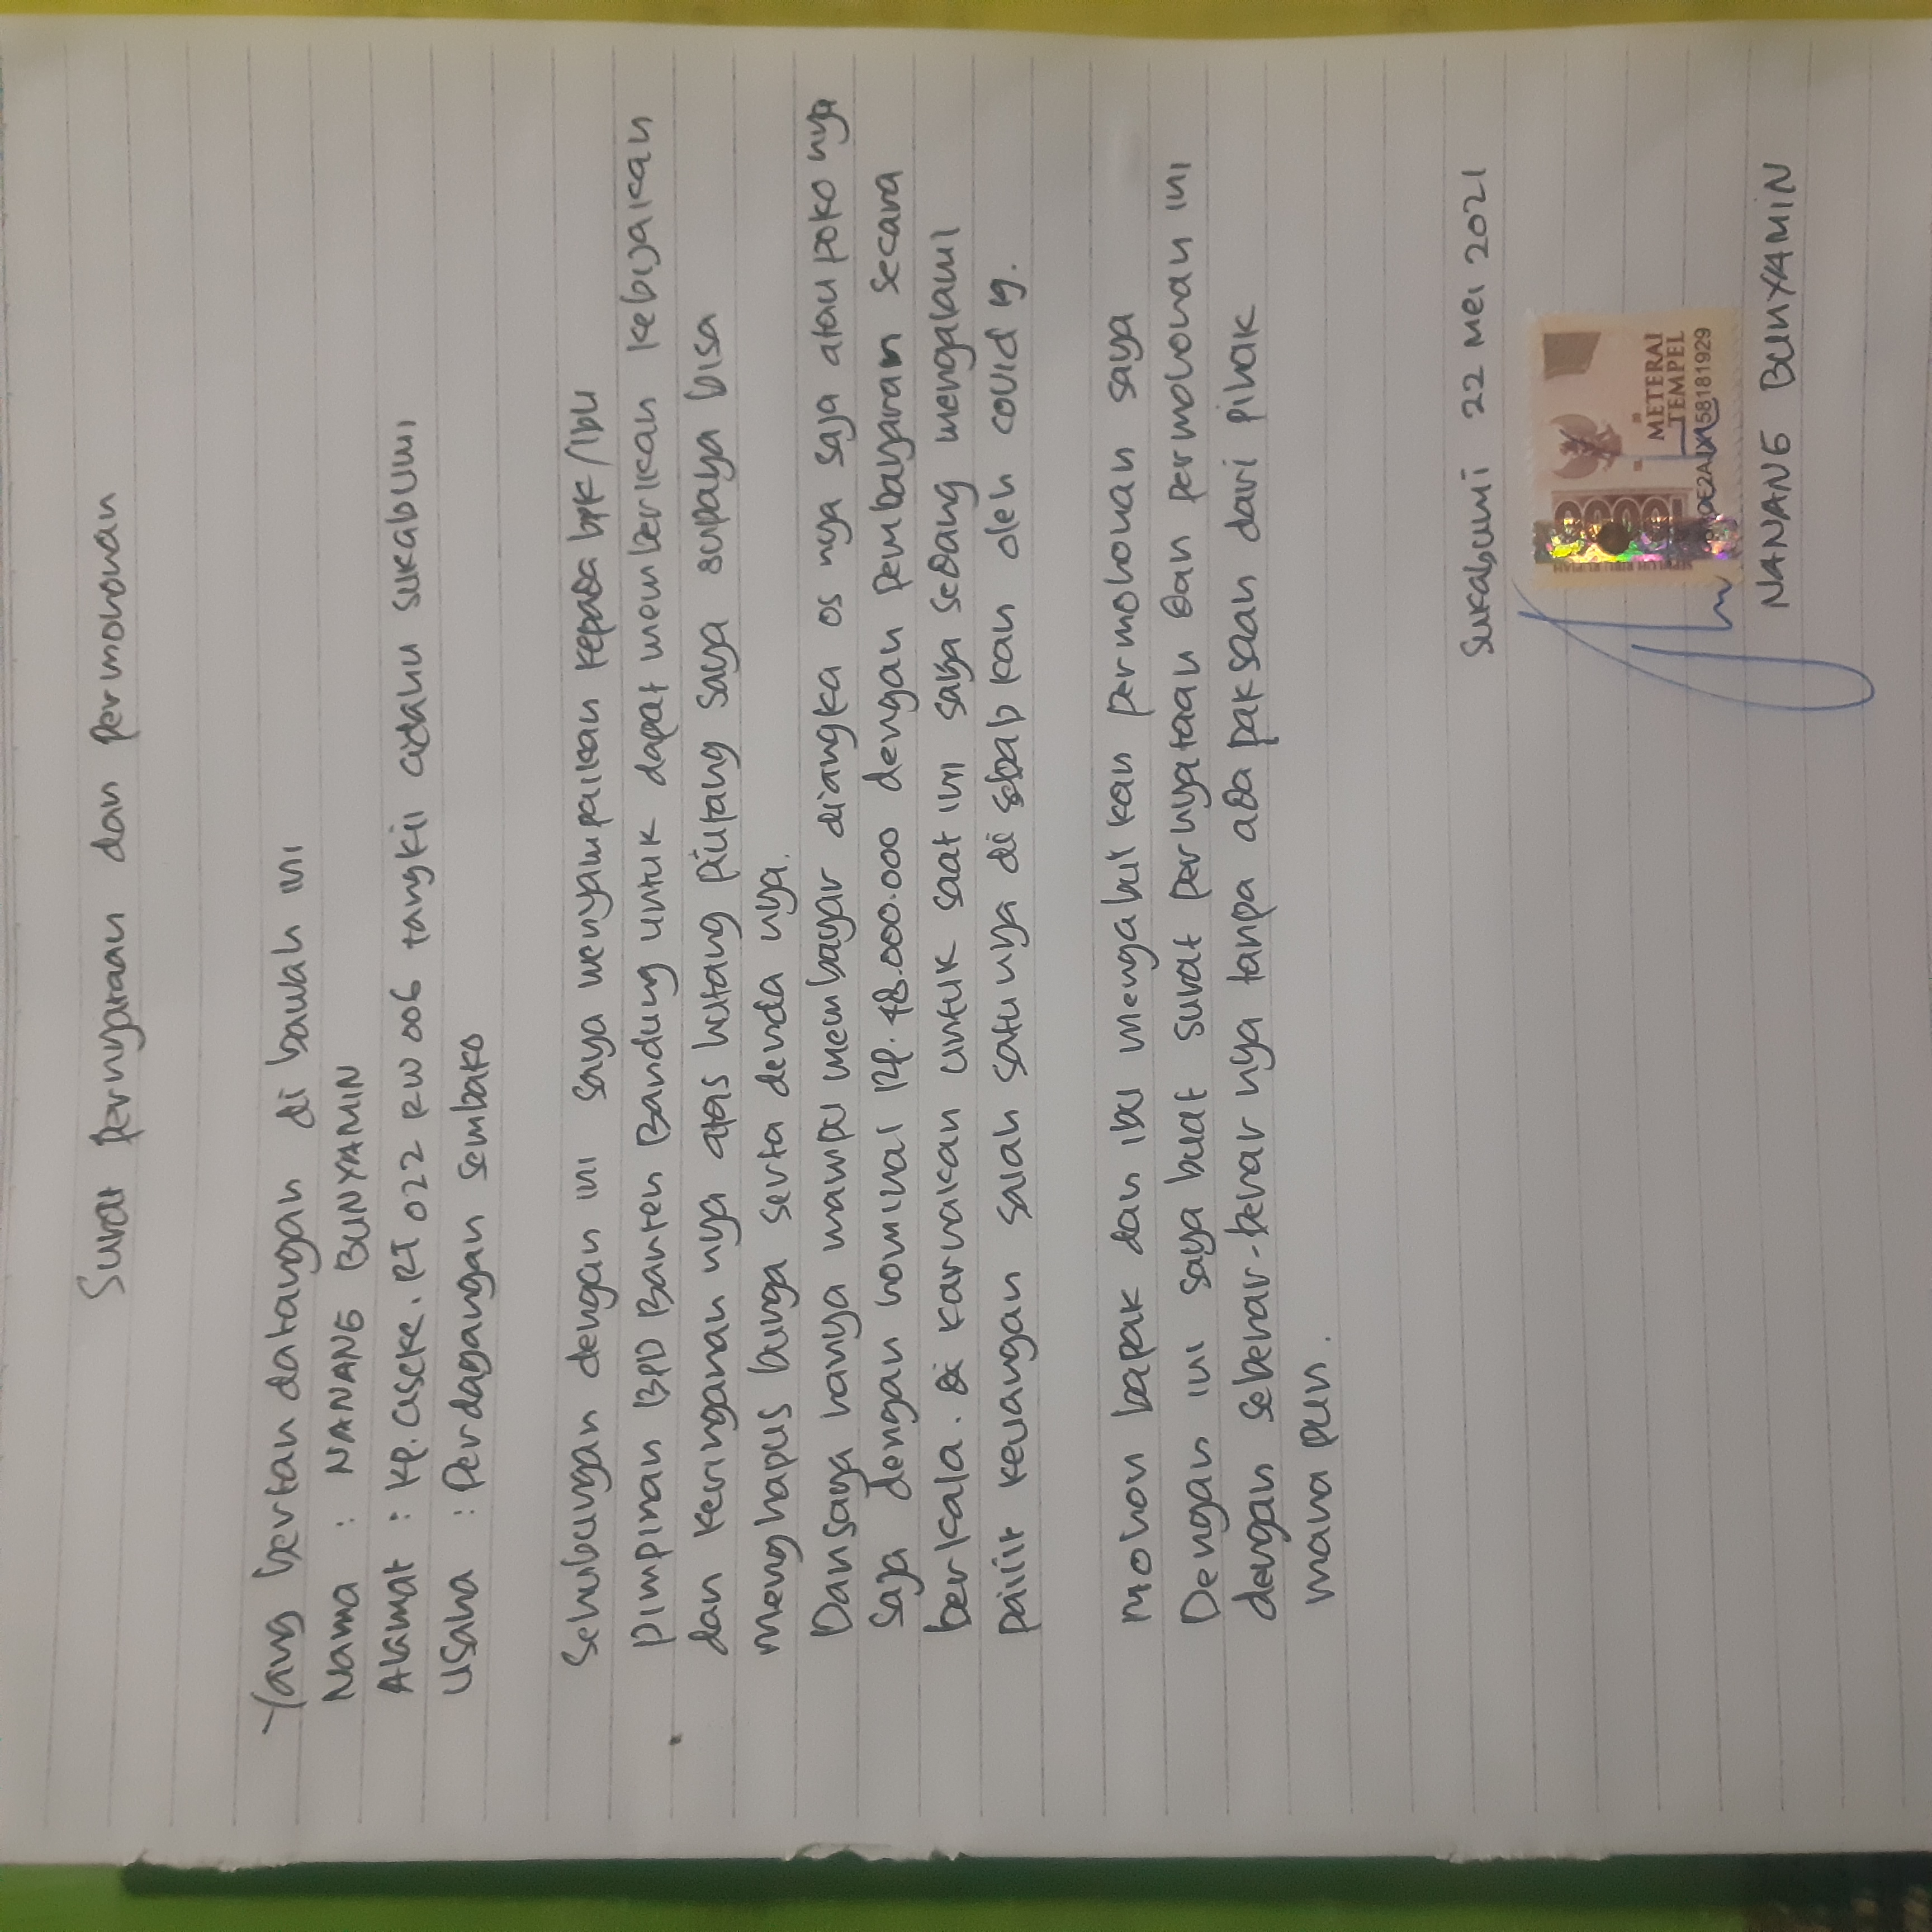 Surat pernyaraan dan permohonan
Yang bertandatangan di bawah ini
Nama : NANANG BUNYAMIN
Alamat : Kp. Ciseke. RT 022 RW 006 tangkil cidahu sukabumi
Usaha : Perdagangan sembako
Sehubungan dengan ini saya menyampaikan kepada bpk/ibu
Pimpinan BPD Banten Bandung untuk dapat memberikan kebijakan
dan keringanan nya atas hutang piutang saya supaya bisa
menghapus bunga serta denda nya.
Dan saya hanya mampu membayar diangka os nya saja atau poko nya
saja dengan nominal Rp. 48.000.000 dengan pembayaran secara
berkala. di karnakan untuk saat ini saya sedang mengalami
pailit keuangan salah satunya di sebab kan oleh covid 19.
Mohon bapak dan ibu mengabul kan permohonan saya
Dengan ini saya buat surat pernyataan dan permohonan ini
dengan sebenar-benar nya tanpa ada paksaan dari pihak
mana pun.
Sukabumi 22 Mei 2021
10000
METERAI
TEMPEL
58181929
NANANG BUNYAMIN